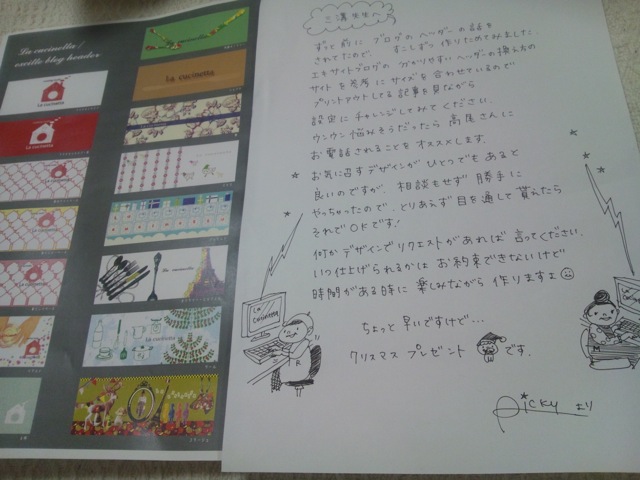 La cucinetta /
excite blog header
La cucinetta
La cucinetta
La cucinetta
La cucinetta
三溝先生へ
ずっと前に ブログの ヘッダーの話を
されてたので、 すこしずつ 作りためてみました。
エキサイトブログの 分かりやすい ヘッダーの換え方の
サイトを参考に サイズを 合わせているので
プリントアウトしてる 記事を 見ながら
設定に チャレンジしてみて ください。
ウンウン 悩みそうだったら 高尾さんに
お電話されることを オススメします。
お気に召すデザインが ひとつでも あると
良いのですが、 相談もせず 勝手に
やっちゃったので、 とりあえず 目を通して 貰えたら
それで OKです!
何かデザインで リクエストがあれば 言ってください。
いつ仕上げられるかは お約束できないけど
時間がある時に 楽しみながら 作りますよ
La
Cucinetta
La
Cucinetta
ちょっと 早いですけど…
クリスマス プレゼント です.
Picky より